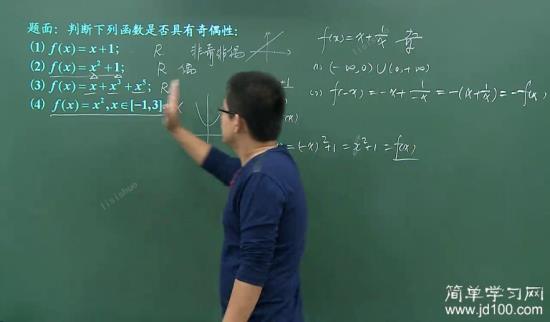 题面：判断下列函数是否具有奇偶性：
(1) f(x)=x+1; R 非奇非偶
(2) f(x)=x²+1; R 偶
(3) f(x)=x+x³+x⁵; R
(4) f(x)=x²,x∈[-1,3]
f(x)=x+1/x
(-∞,0)∪(0,+∞)
f(-x)=-x+1/-x=-(x+1/x)=-f(x)
=(-x)²+1=x²+1=f(x)
lisishuo
简单学习网
www.jd100.com